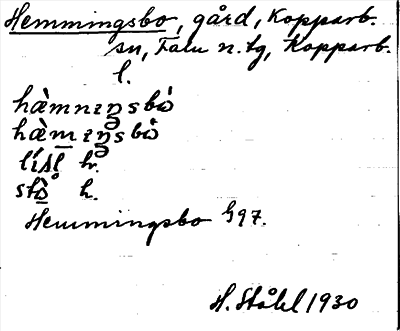 Hemmingsbo, gård, Kopparb.
sn, Falu n. tg, Kopparb.
l.
hæ̀mnɪŋsbò
hæ̀mɪŋsbò
h.
h.
Hemmingsbo G97.
H. Ståhl 1930